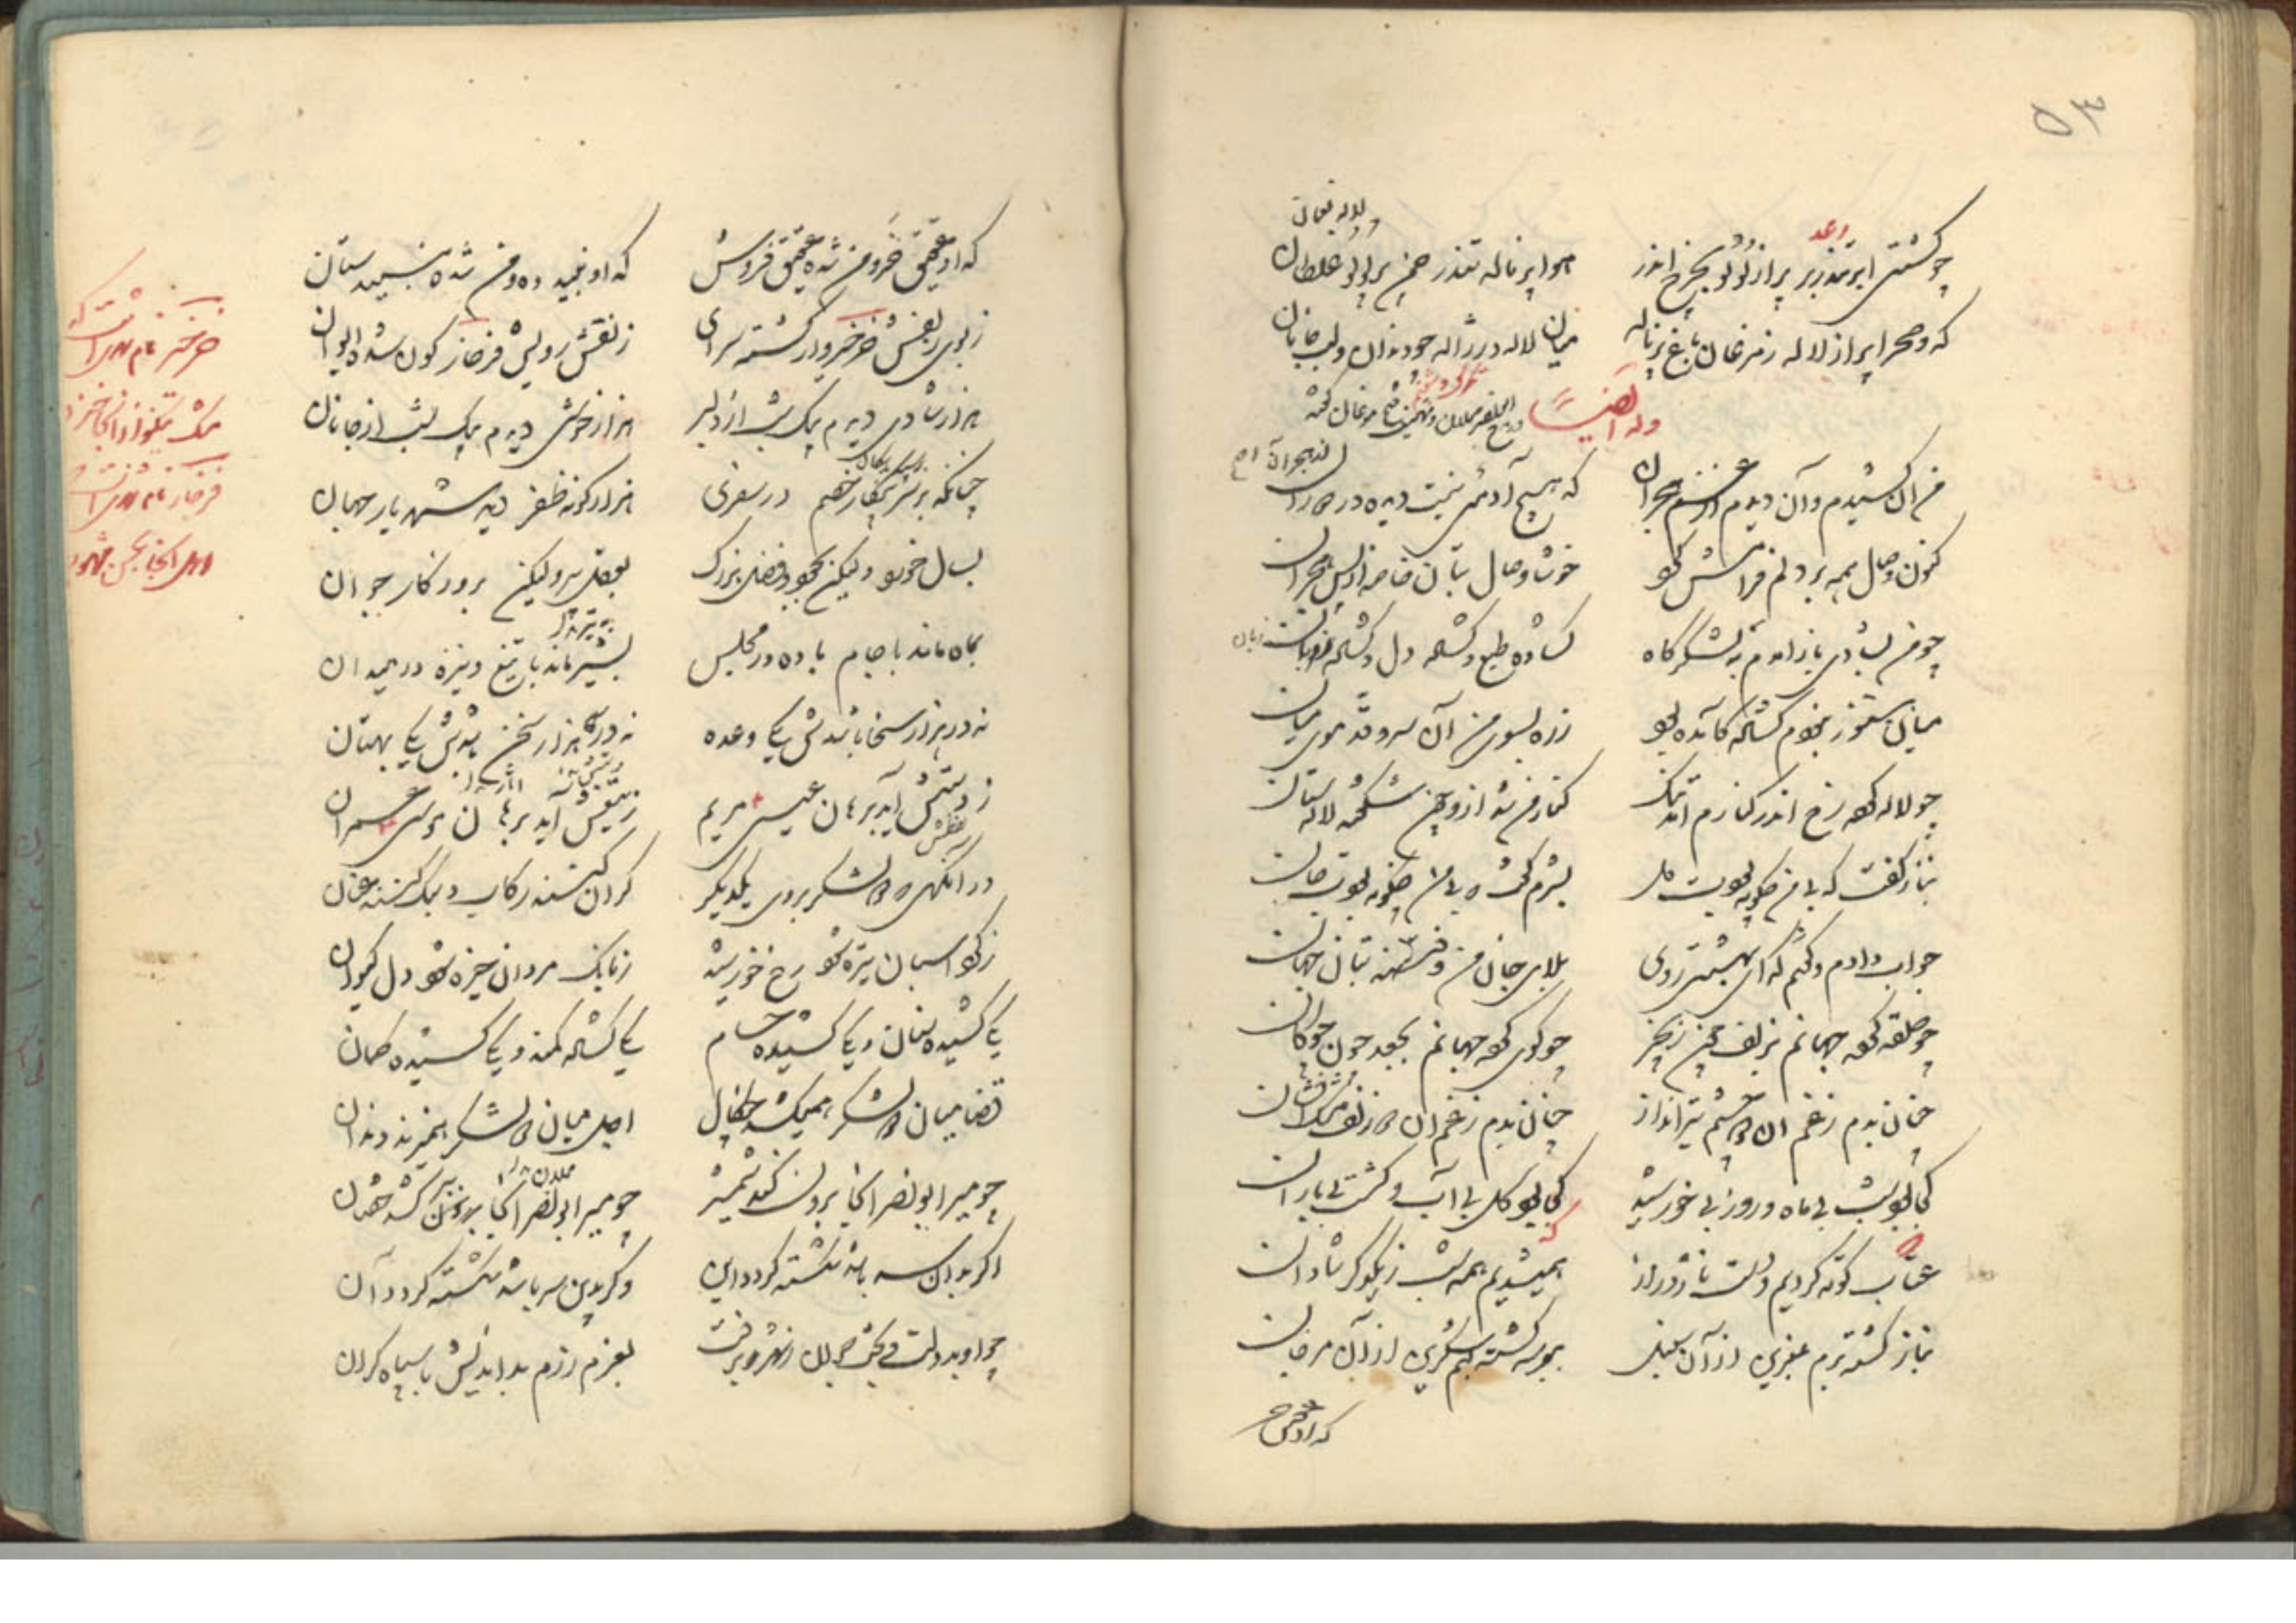 و لاله نعمان
رعد
چو کشتی ابر تندر بر پر از لولو بچرخ اندر هوا پر ناله تندر چمن پر لولو غلطان
که و صحرا پر از لاله ز مرغان باغ پر ناله میان لاله در ژاله چو دندان و لب جانان
وله ایضاً
من آن کشیدم و آن دیدم از غم هجران که هیچ آدمئی نیست دیده در دوران
کنون وصال همه بر دلم فرامش کرد خوشا وصال بتان خاصه از پس هجران
چو من بشادی باز آمدم به لشکرگاه گشاده طبع و گشاده دل و گشاده زبان
میان هنوز نبودم گشاده کآمده بود زره بسوی من آن سرو قد موی میان
چو لاله کرد رخ اندر کنارم آمد تنگ کنار من شد از و چون شکفته لاله ستان
بناز گفت که بی من چگونه بودت دل بشرم گفت که بی من چگونه بودت جان
جواب دادم و گفتم که ای بهشتی روی بلای جان من و فتنه بتان جهان
چو حلقه کرد جهانم بزلف چون زنجیر چو گوی کرد جهانم بجعد چون چوگان
چنان بدم ز غم آن دو چشم تیرانداز چنان بدم ز غم آن دو زلف مشک افشان
کجا بود شب بی ماه و روز بی خورشید کجا بود گل بی آب و کشت بی باران
عتاب کوته کردیم و دست ناز دراز همیشدیم همه شب ز یکدگر شادان
بناز گشته برم عنبرین از آن سنبل ببوسه گشته لبم شکرین از آن مرجان
که او عقیق خر و من شده عقیق فروش که او نبید ده و من شده نبید ستان
ز بوی زلفش خرخیز وار گشته سرای ز نقش رویش فرخار گون شده ایوان
هزار شادی دیدم بیک شب از دلبر هزار خوشی دیدم بیک شب از جانان
چنانکه بر سر پیکار خصم در سفری هزار گونه ظفر دید شهریار جهان
بسال خورد ولیکن بجود و فضل بزرگ بعقل پیر ولیکن بروزگار جوان
بماه ماند با جام باده در مجلس بشیر ماند با تیغ و نیزه در میدان
نه در هزار سخا باشدش یکی وعده نه در هزار سخن باشدش یکی بهتان
ز دستش آید برهان عیسی مریم ز تیغش آید برهان موسی عمران
در آنگهی دو لشکر بروی یکدیگر گران کنند رکاب و سبک کنند عنان
ز گرد اسبان تیره شود رخ خورشید ز بانگ مردان خیره شود دل کیوان
یکی کشیده سنان و یکی کشیده حسام یکی گشاده کمند و یکی کشیده کمان
قضا میان دو لشکر همیکشد چنگال اجل میان دو لشکر همیزند دندان
چو میر ابو نصر آنجا برون کند شمشیر چو میر ابو نصر آنجا
اگر بدان سر باشد شکسته گردد این وگر بدین سر باشد شکسته گردد آن
چو او بدولت و بخت جوان ز شهر برفت بعزم رزم بداندیش با سپاه گران
خرخیز نام شهری است که
مشک نیکو از آنجا خیزد
فرخار نام شهری است